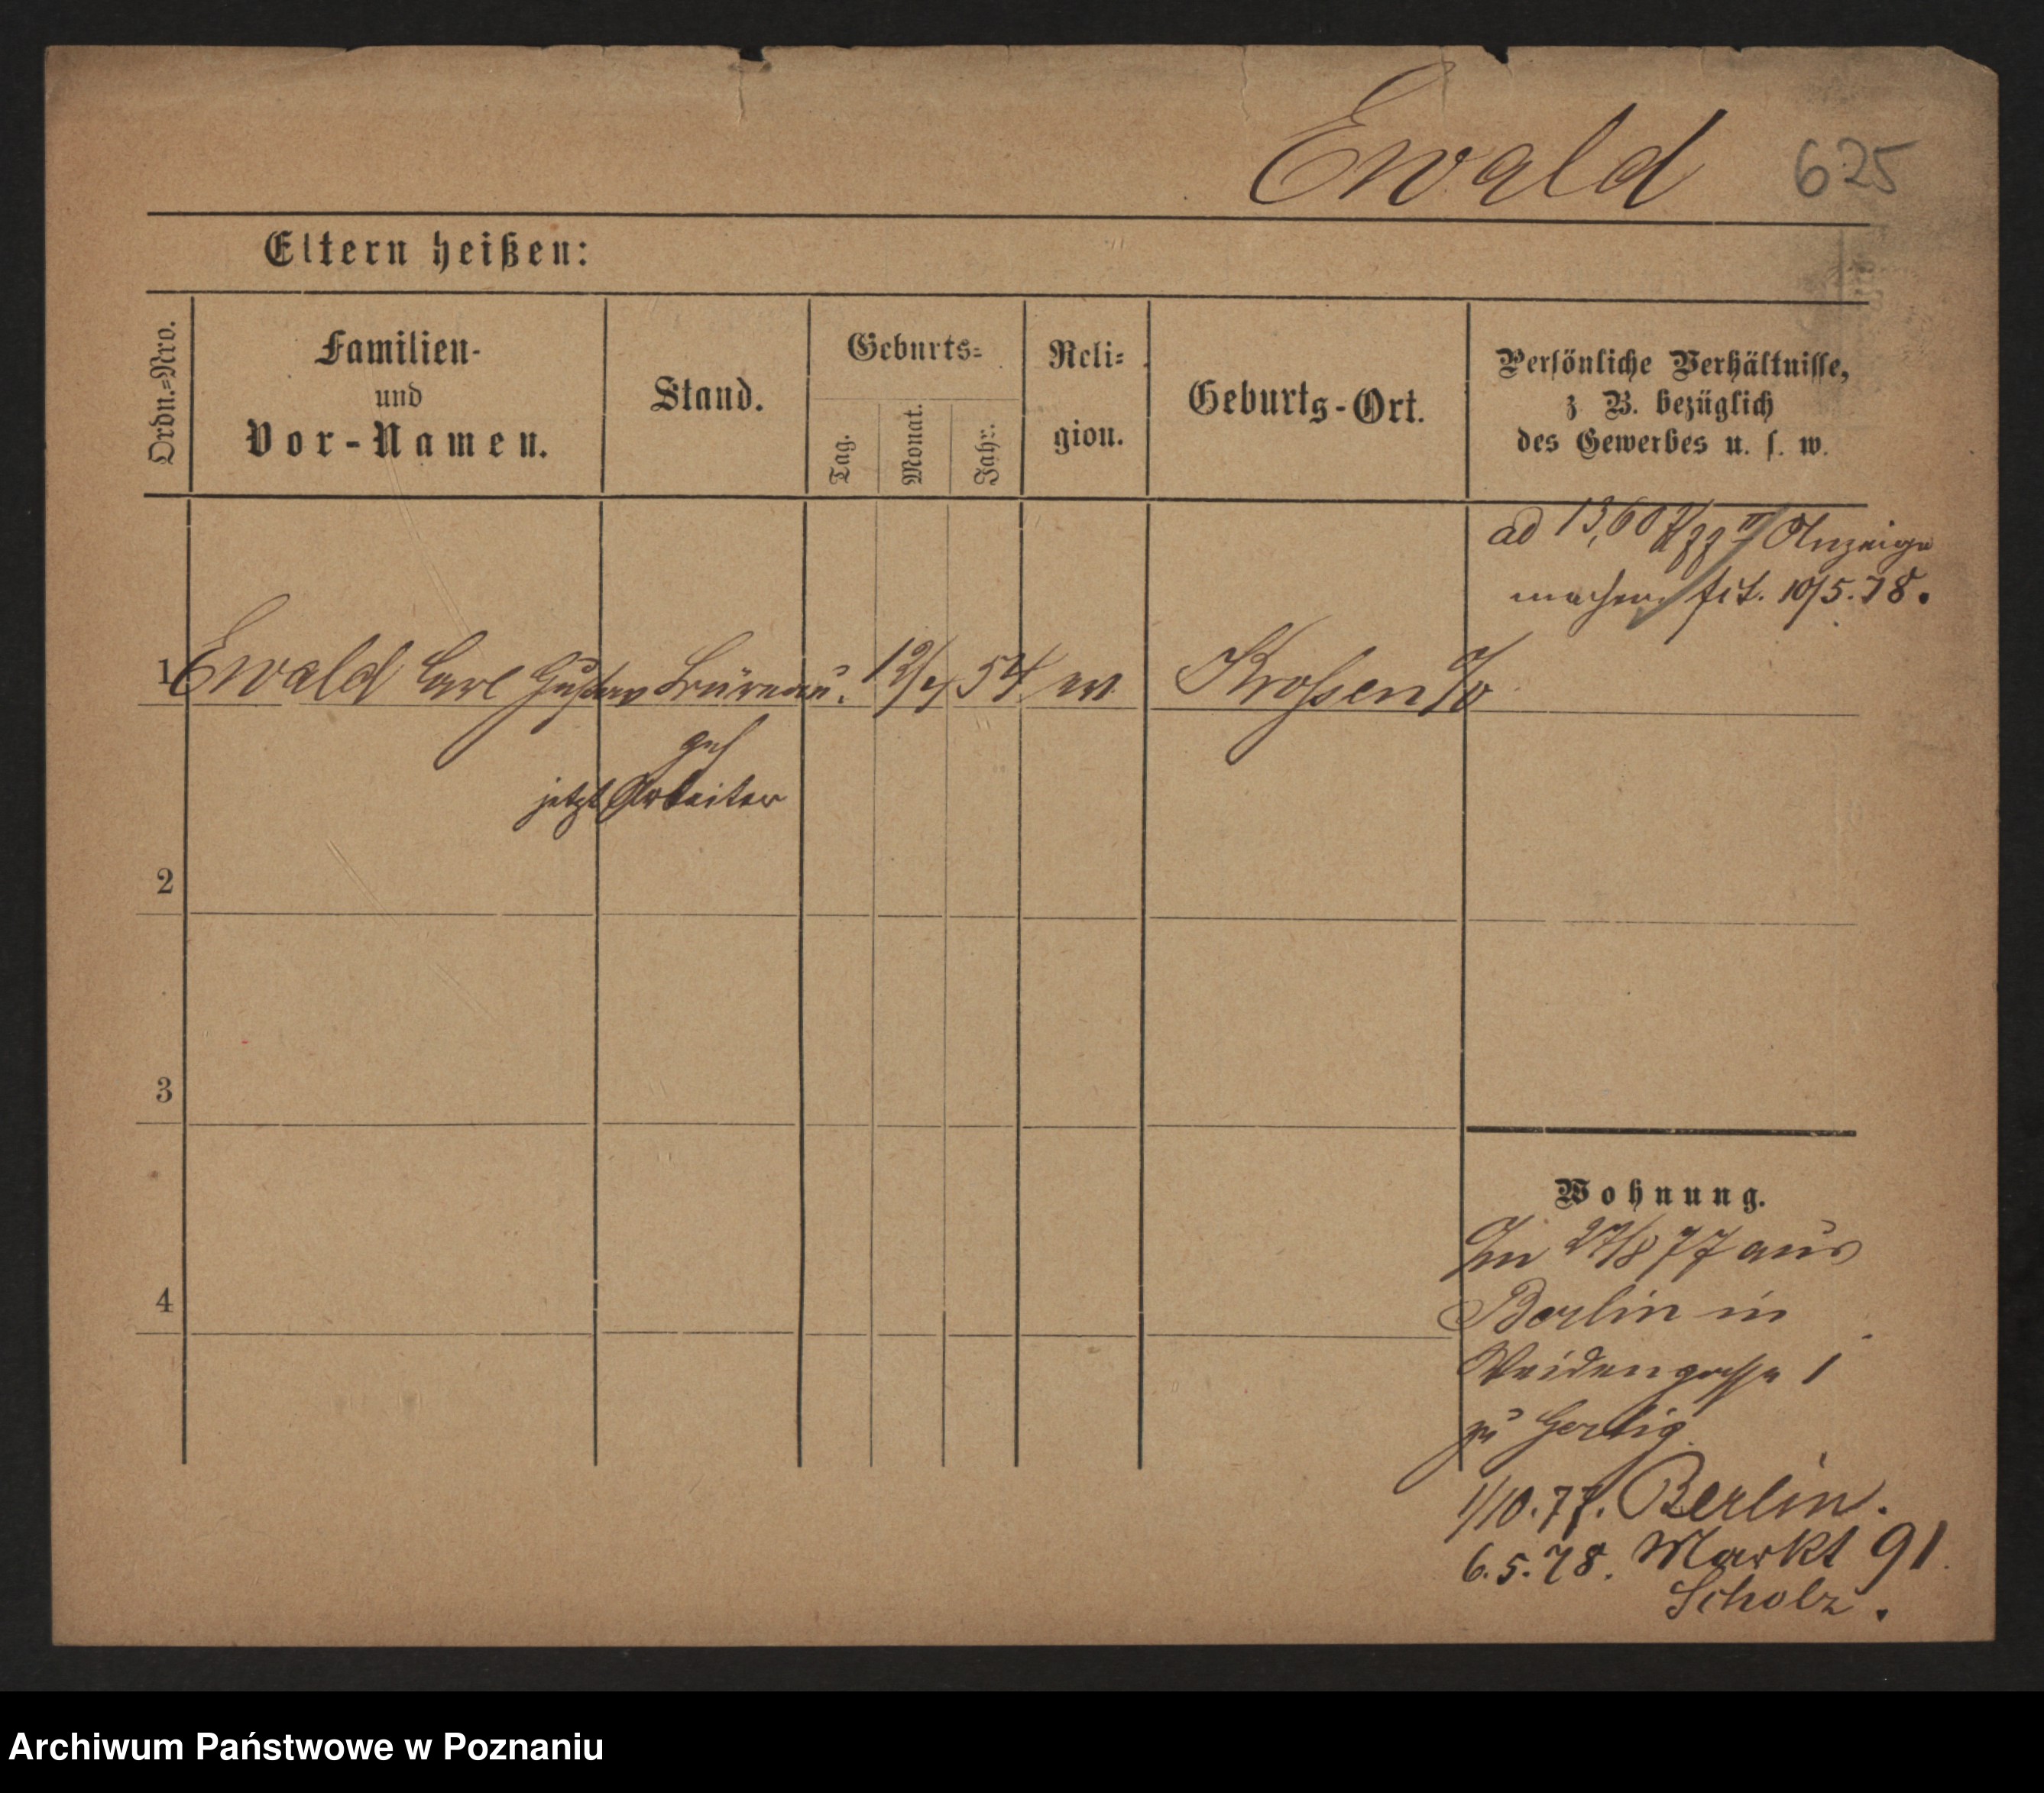 Ewald 625
Eltern heißen:
Ordn.=Nro.
Familien-
und
Vor-Namen.
Stand.
Geburts=
Tag.
Monat.
Jahr.
Reli=
gion.
Geburts-Ort.
Persönliche Verhältnisse,
z. B. bezüglich
des Gewerbes u. s. w.
ad 13,607/77 II Anzeige
machen fct. 10/5.78.
1 Ewald Carl Gustav 12/4 54 ev Krossen a/O
geh
jetzt Arbeiter
2
3
4
Wohnung.
Im 27/8 77 aus
Berlin in
Weidengasse 1
zu
1/10.77. Berlin.
6.5.78. Markt 91.
Scholz.
Archiwum Państwowe w Poznaniu